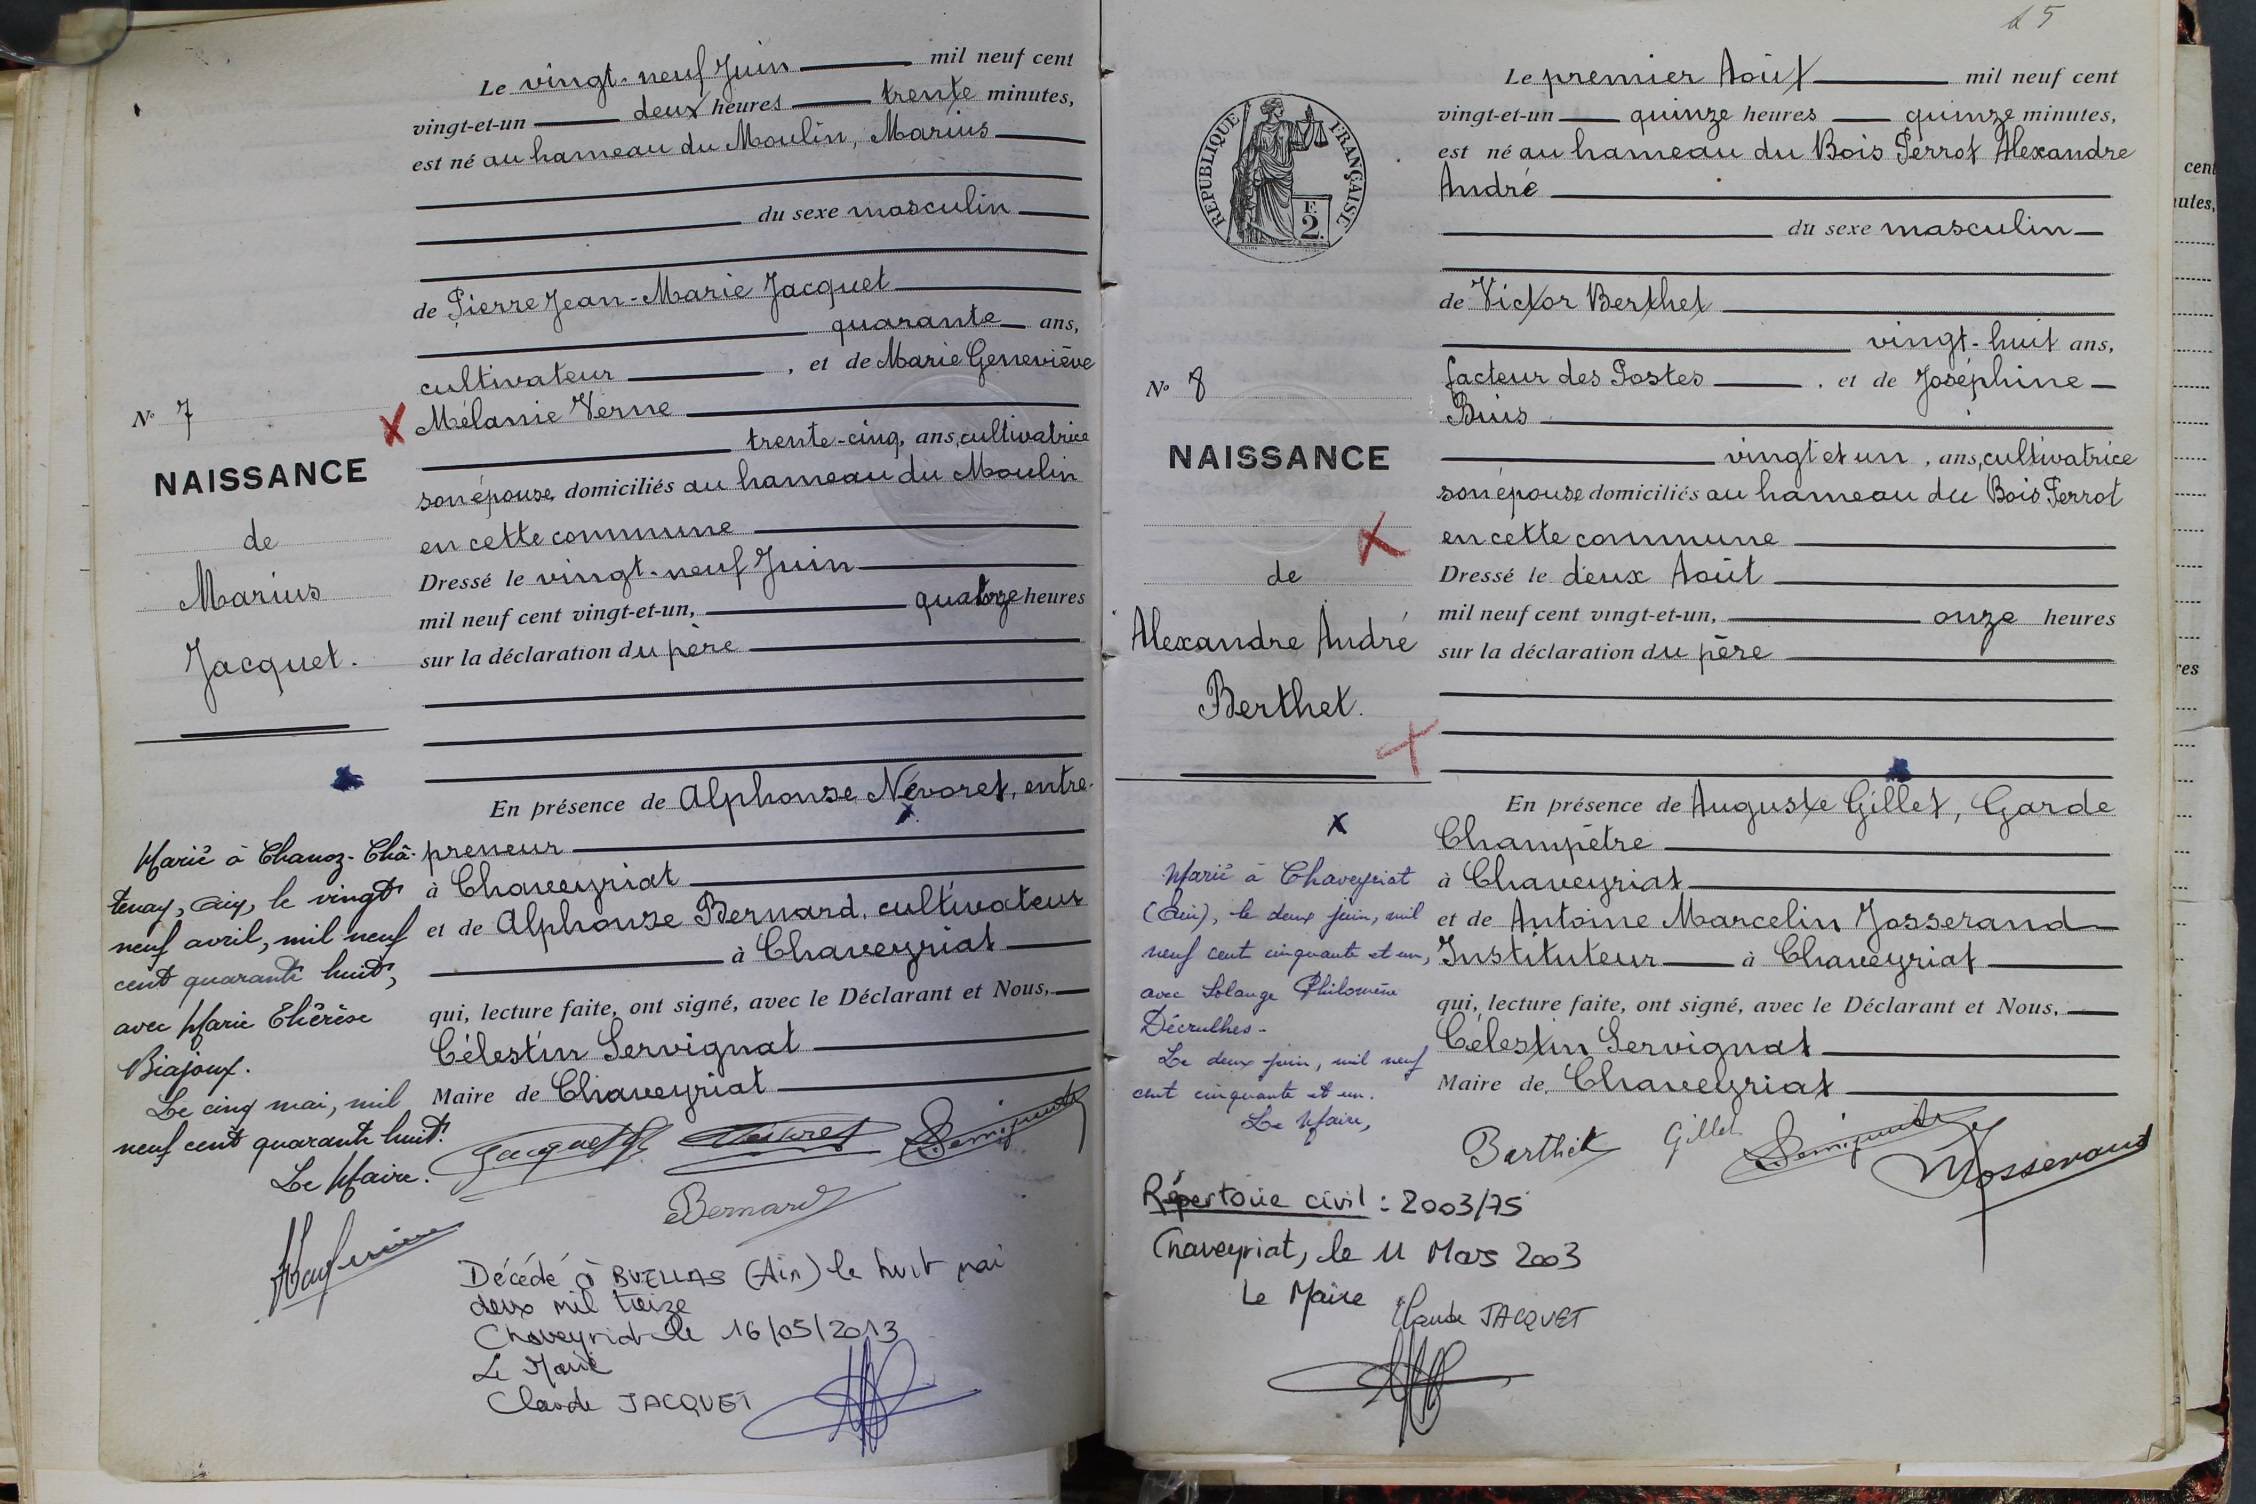 Le vingt-neuf Juin mil neuf cent
vingt-et-un deux heures trente minutes,
est né au hameau du Moulin, Marius
du sexe masculin
de Pierre Jean-Marie Jacquet
quarante ans,
cultivateur , et de Marie Geneviève
Mélanie Verne
trente-cinq, ans, cultivatrice
son épouse, domiciliés au hameau du Moulin
en cette commune
Dressé le vingt-neuf Juin
mil neuf cent vingt-et-un, quatorze heures
sur la déclaration du père
En présence de Alphonse Névoret, entre-
preneur
à Chaveyriat
et de Alphonse Bernard, cultivateur
à Chaveyriat
qui, lecture faite, ont signé, avec le Déclarant et Nous,
Célestin Servignat
Maire de Chaveyriat
Jacquet
Bernard
N° 7
NAISSANCE
de
Marius
Jacquet.
Marié à Chanoz-Châ-
tenay, Ain, le vingt
neuf avril, mil neuf
cent quarante huit,
avec Marie Thérèse
Biajoux.
Le cinq mai, mil
neuf cent quarante huit.
Le Maire.
Décédé à BUELLAS (Ain) le huit mai
deux mil treize
Chaveyriat le 16/05/2013
Le Maire
Claude JACQUET
15
RÉPUBLIQUE FRANÇAISE
F
2.
Le premier Août mil neuf cent
vingt-et-un quinze heures quinze minutes,
est né au hameau du Bois Perrot Alexandre
André
du sexe masculin
de Victor Berthet
vingt-huit ans,
facteur des Postes , et de Joséphine
Buis
vingt et un , ans, cultivatrice
son épouse domiciliés au hameau du Bois Perrot
en cette commune
Dressé le deux Août
mil neuf cent vingt-et-un, onze heures
sur la déclaration du père
En présence de Auguste Gillet, Garde
Champêtre
à Chaveyriat
et de Antoine Marcelin Josserand
Instituteur à Chaveyriat
qui, lecture faite, ont signé, avec le Déclarant et Nous,
Célestin Servignat
Maire de Chaveyriat
Berthet Gillet
Josserand
N° 8
NAISSANCE
de
Alexandre André
Berthet.
Marié à Chaveyriat
(Ain), le deux juin, mil
neuf cent cinquante et un,
avec Solange Philomène
Décrulhes.
Le deux juin, mil neuf
cent cinquante et un.
Le Maire,
Répertoire civil : 2003/75
Chaveyriat, le 11 Mars 2003
Le Maire Claude JACQUET
cent
utes,
res